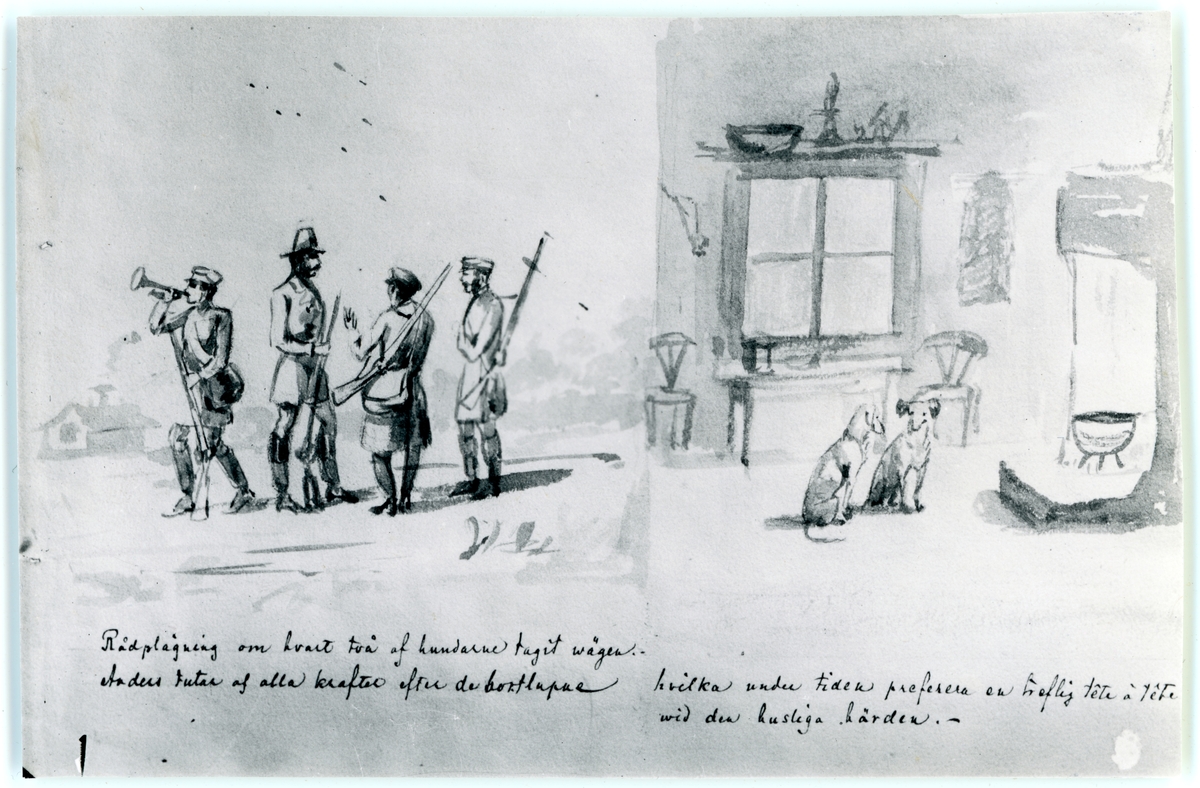 Rådplägning om hvart två af hundarne tagit wägen.-
Anders tutar af alla krafter efter de bortlupne
hvilka under tiden preferera en treflig tête à tête
wid den husliga härden. -
1